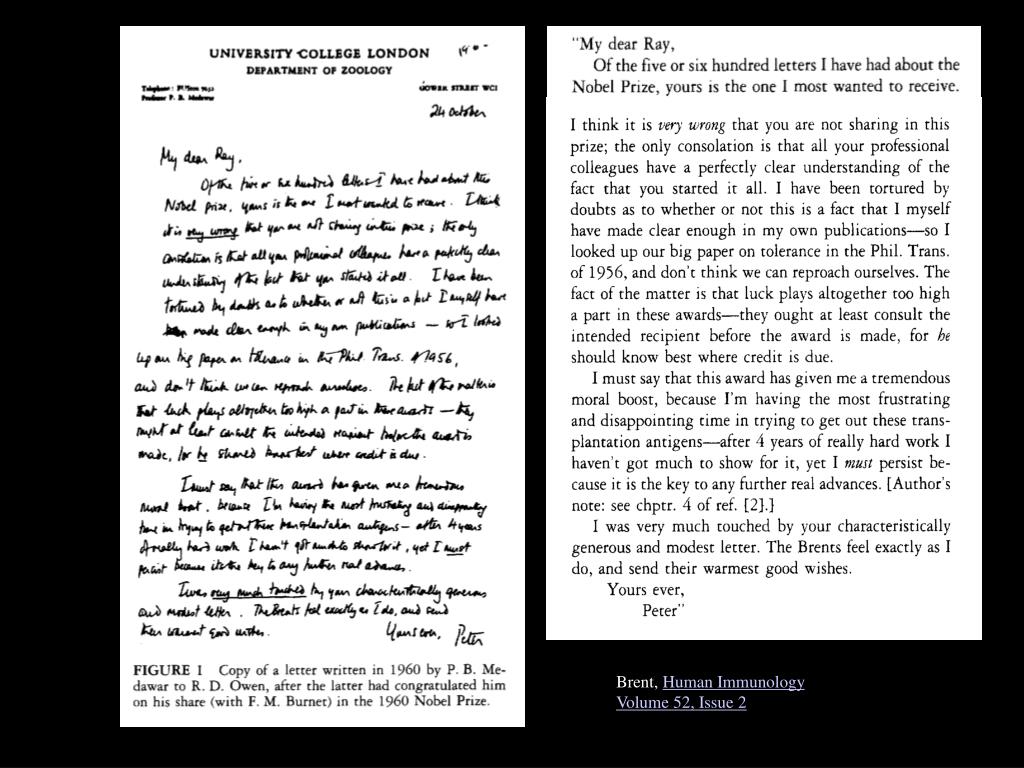 UNIVERSITY COLLEGE LONDON
DEPARTMENT OF ZOOLOGY
GOWER STREET WC1
24 October
My dear Ray,
Of the five or six hundred letters I have had about the
Nobel Prize, yours is the one I most wanted to receive. I think
it is very wrong that you are not sharing in this prize; the only
consolation is that all your professional colleagues have a perfectly clear
understanding of the fact that you started it all. I have been
tortured by doubts as to whether or not this is a fact I myself have
made clear enough in my own publications — so I looked
up our big paper on tolerance in the Phil. Trans. of 1956,
and don't think we can reproach ourselves. The fact of the matter is
that luck plays altogether too high a part in these awards — they
ought at least consult the intended recipient before the award is
made, for he should know best where credit is due.
I must say that this award has given me a tremendous
moral boost, because I'm having the most frustrating and disappointing
time in trying to get out these transplantation antigens — after 4 years
of really hard work I haven't got much to show for it, yet I must
persist because it is the key to any further real advances.
I was very much touched by your characteristically generous
and modest letter. The Brents feel exactly as I do, and send
their warmest good wishes.
Yours ever, Peter
FIGURE 1 Copy of a letter written in 1960 by P. B. Me-
dawar to R. D. Owen, after the latter had congratulated him
on his share (with F. M. Burnet) in the 1960 Nobel Prize.
"My dear Ray,
Of the five or six hundred letters I have had about the
Nobel Prize, yours is the one I most wanted to receive.
I think it is very wrong that you are not sharing in this
prize; the only consolation is that all your professional
colleagues have a perfectly clear understanding of the
fact that you started it all. I have been tortured by
doubts as to whether or not this is a fact that I myself
have made clear enough in my own publications—so I
looked up our big paper on tolerance in the Phil. Trans.
of 1956, and don't think we can reproach ourselves. The
fact of the matter is that luck plays altogether too high
a part in these awards—they ought at least consult the
intended recipient before the award is made, for he
should know best where credit is due.
I must say that this award has given me a tremendous
moral boost, because I'm having the most frustrating
and disappointing time in trying to get out these trans-
plantation antigens—after 4 years of really hard work I
haven't got much to show for it, yet I must persist be-
cause it is the key to any further real advances. [Author's
note: see chptr. 4 of ref. [2].}
I was very much touched by your characteristically
generous and modest letter. The Brents feel exactly as I
do, and send their warmest good wishes.
Yours ever,
Peter"
Brent, Human Immunology
Volume 52, Issue 2